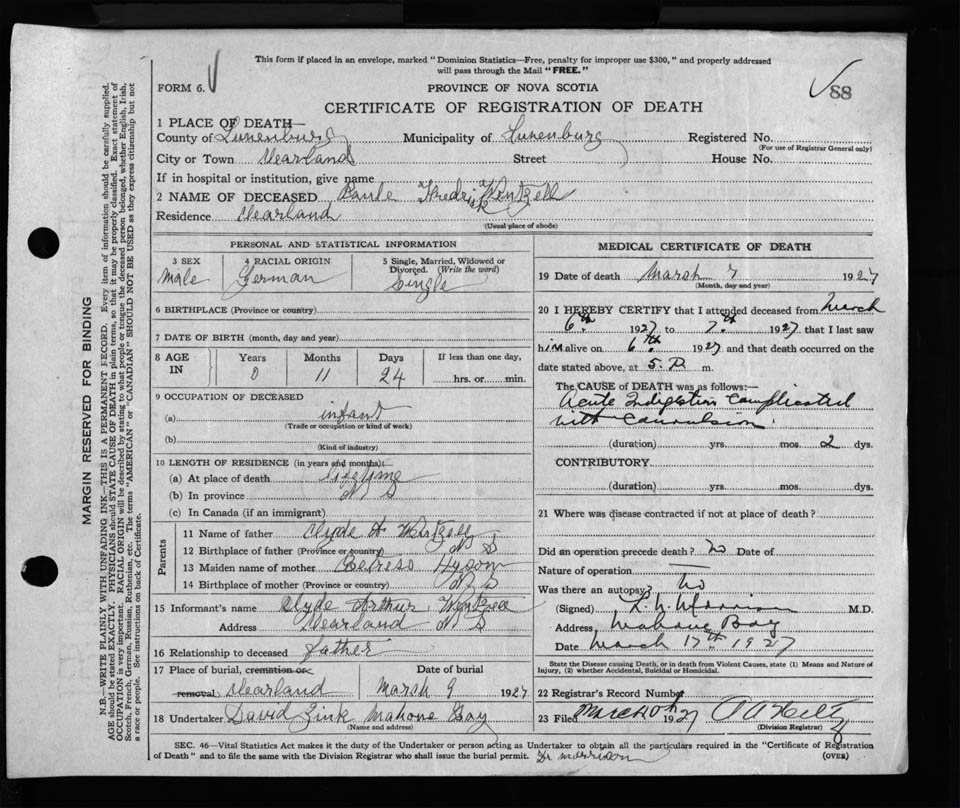 This form if placed in an envelope, marked "Dominion Statistics—Free, penalty for improper use $300," and properly addressed
will pass through the Mail "FREE."
FORM 6.
PROVINCE OF NOVA SCOTIA
88
CERTIFICATE OF REGISTRATION OF DEATH
1 PLACE OF DEATH—
County of Lunenburg Municipality of Lunenburg Registered No.
(For use of Registrar General only)
City or Town Clearland Street House No.
If in hospital or institution, give name
2 NAME OF DECEASED Fredrick Wentzell
Residence Clearland
(Usual place of abode)
PERSONAL AND STATISTICAL INFORMATION
3 SEX 4 RACIAL ORIGIN 5 Single, Married, Widowed or
Divorced. (Write the word)
Male German Single
6 BIRTHPLACE (Province or country)
7 DATE OF BIRTH (month, day and year)
8 AGE IN Years Months Days If less than one day,
0 11 24 hrs. or min.
9 OCCUPATION OF DECEASED
(a) infant
(Trade or occupation or kind of work)
(b)
(Kind of industry)
10 LENGTH OF RESIDENCE (in years and months):
(a) At place of death life time
(b) In province N S
(c) In Canada (if an immigrant)
Parents
11 Name of father Clyde A Wentzell
12 Birthplace of father (Province or country) N S
13 Maiden name of mother Hyson
14 Birthplace of mother (Province or country) N S
15 Informant's name Clyde Arthur Wentzell
Address Clearland N S
16 Relationship to deceased father
17 Place of burial, cremation or Date of burial
removal, Clearland March 9 1927
18 Undertaker David Zink Mahone Bay
(Name and address)
MEDICAL CERTIFICATE OF DEATH
19 Date of death March 7 1927
(Month, day and year)
20 I HEREBY CERTIFY that I attended deceased from March
6th 1927 to 7th 1927, that I last saw
him alive on 6th 1927 and that death occurred on the
date stated above, at 5. P. m.
The CAUSE of DEATH was as follows:—
Acute Indigestion Complicated
with Convulsion.
(duration) yrs. mos. 2 dys.
CONTRIBUTORY
(duration) yrs. mos. dys.
21 Where was disease contracted if not at place of death?
Did an operation precede death? No Date of
Nature of operation —
Was there an autopsy? No
(Signed) Morrison M.D.
Address Mahone Bay
Date March 17th 1927
State the Disease causing Death, or in death from Violent Causes, state (1) Means and Nature of
Injury, (2) whether Accidental, Suicidal or Homicidal.
22 Registrar's Record Number
23 Filed March 1927
(Division Registrar)
SEC. 46—Vital Statistics Act makes it the duty of the Undertaker or person acting as Undertaker to obtain all the particulars required in the "Certificate of Registration
of Death" and to file the same with the Division Registrar who shall issue the burial permit. Dr Morrison (OVER)
MARGIN RESERVED FOR BINDING
N.B.—WRITE PLAINLY WITH UNFADING INK—THIS IS A PERMANENT RECORD. Every item of information should be carefully supplied.
AGE should be stated EXACTLY. PHYSICIANS should STATE CAUSE OF DEATH in plain terms, so that it may be properly classified. Exact statement of
OCCUPATION is very important. RACIAL ORIGIN will be described by stating to what people or tongue the deceased person belonged, whether English, Irish,
Scotch, French, German, Russian, Ruthenian, etc. The terms "AMERICAN" or "CANADIAN" SHOULD NOT BE USED as they express citizenship but not
a race or people. See instructions on back of Certificate.